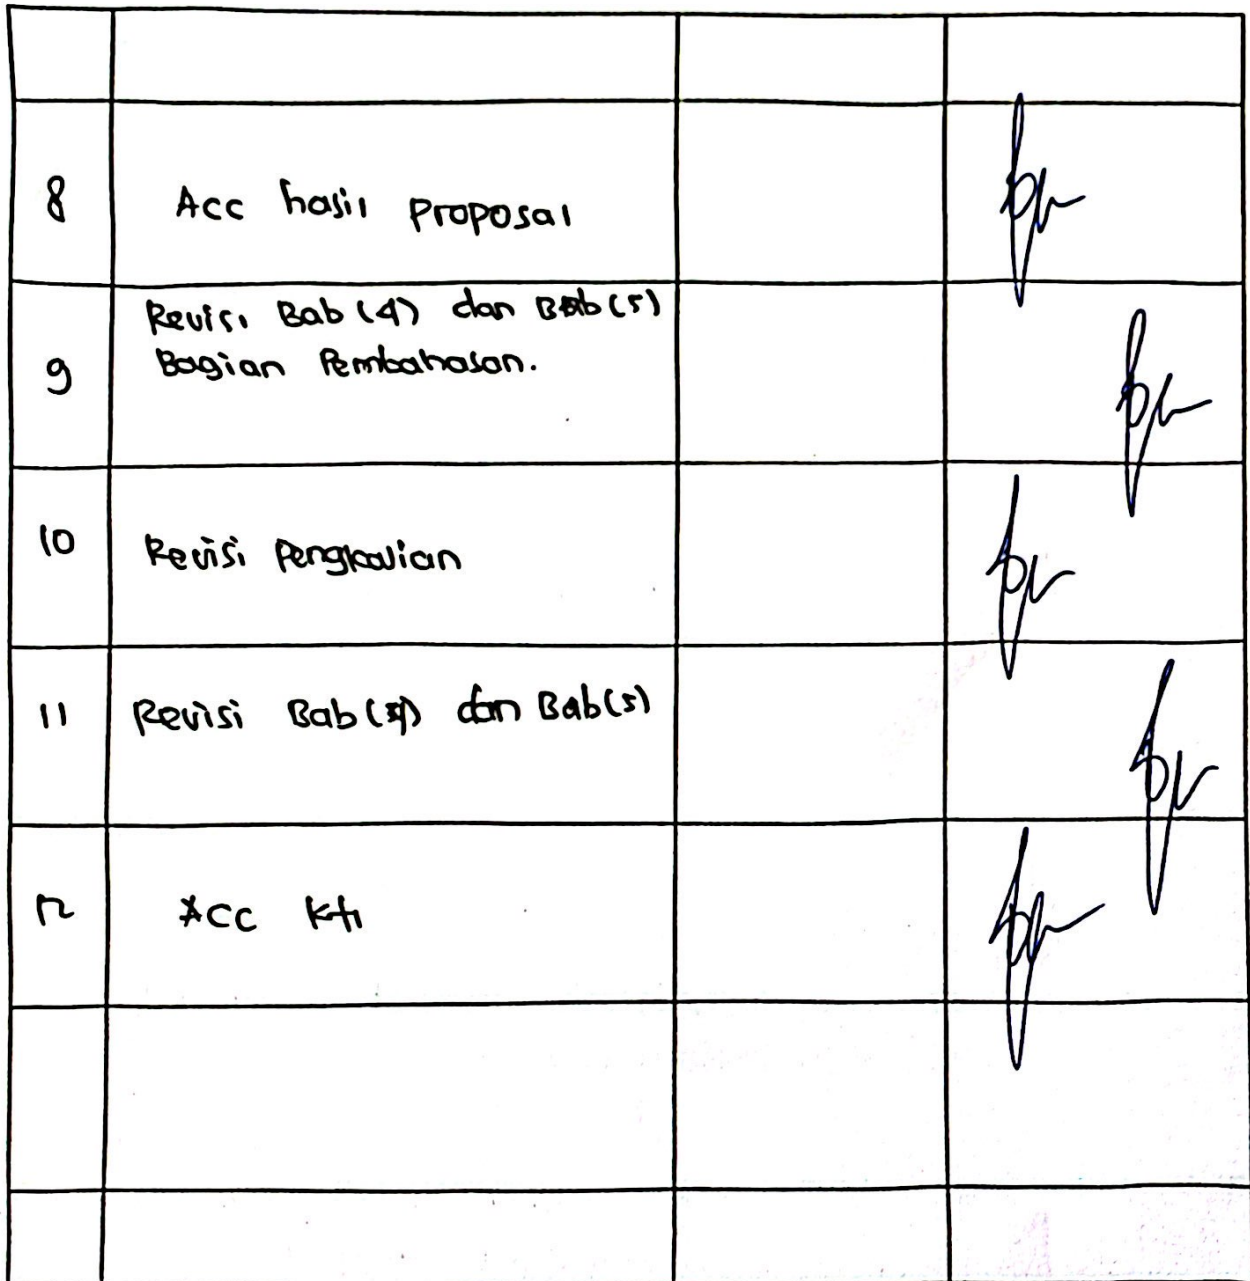 8 Acc hasil proposal
Revisi Bab (4) dan Bab (5)
9 Bagian Pembahasan.
10 Revisi Pengkalian
11 Revisi Bab dan Bab (5)
12 Acc kti